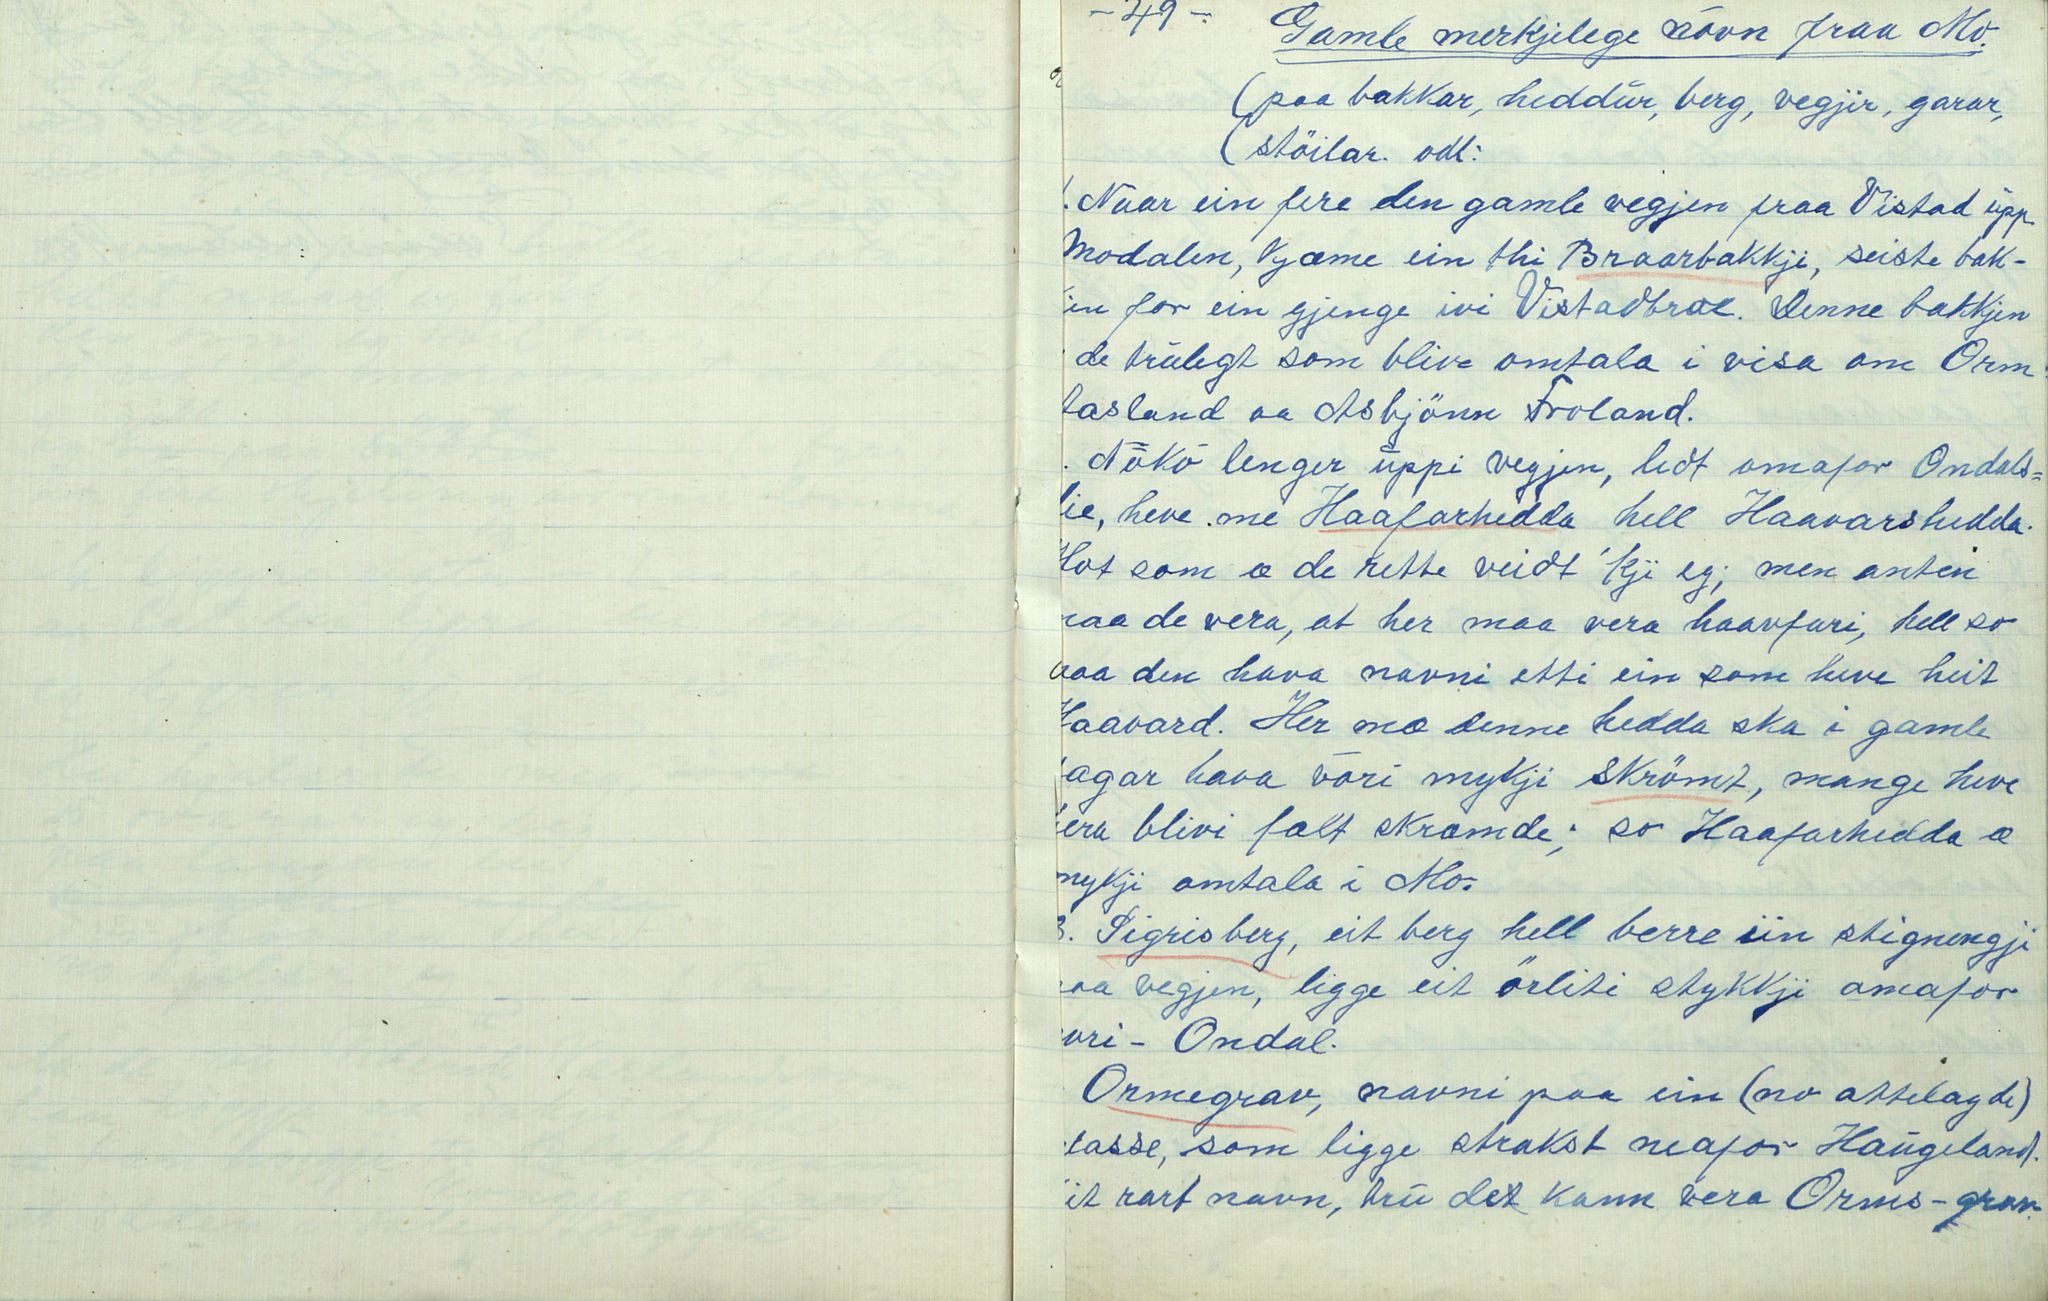 - 49 - Gamle merkjelege növn fraa Mo.
(paa bakkar, heddŭr, berg, vegjir, garar,
(stöilar. odl:
1. Naar ein fere den gamle vegjen fraa Vistad ŭpp
Modalen, kjæme ein thi Braarbakkji, seiste bak-
in for ein gjenge ivi Vistadbrae. Denne bakkjen
de trŭlegt som blive omtala i visa om Orm
tasland aa Asbjönn Froland.
. Nökö lenger ŭppi vegjen, lidt omafor Ondals=
lie, heve me Haafarhedda hell Haavarshedda.
Hot som æ de rette veidt 'kji eg; men anten
maa de vera, at her maa vera haavfari, hell so
maa den hava navni etti ein som heve heit
Haavard. Her mæ denne hedda ska i gamle
dagar hava vöri mykji skrömt, mange heve
hera blivi fælt skræmde; so Haafarhedda æ
mykji omtala i Mo.
3. Sigrisberg, eit berg hell berre ein stignengji
paa vegjen, ligge eit örliti stykkji omafor
øvri - Ondal.
Ormegrav, navni paa ein (no attelagde)
lasse, som ligge strakst neafor Haŭgeland.
it rart navn, trŭ det kann vera Orms-grav